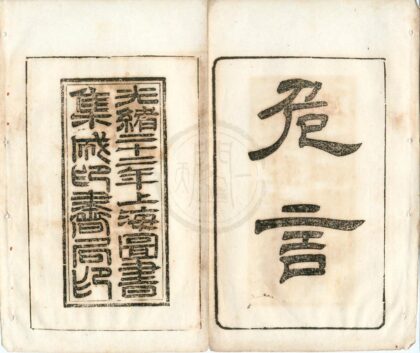 危言
光緒二十二年上海圖書
集成印書局印